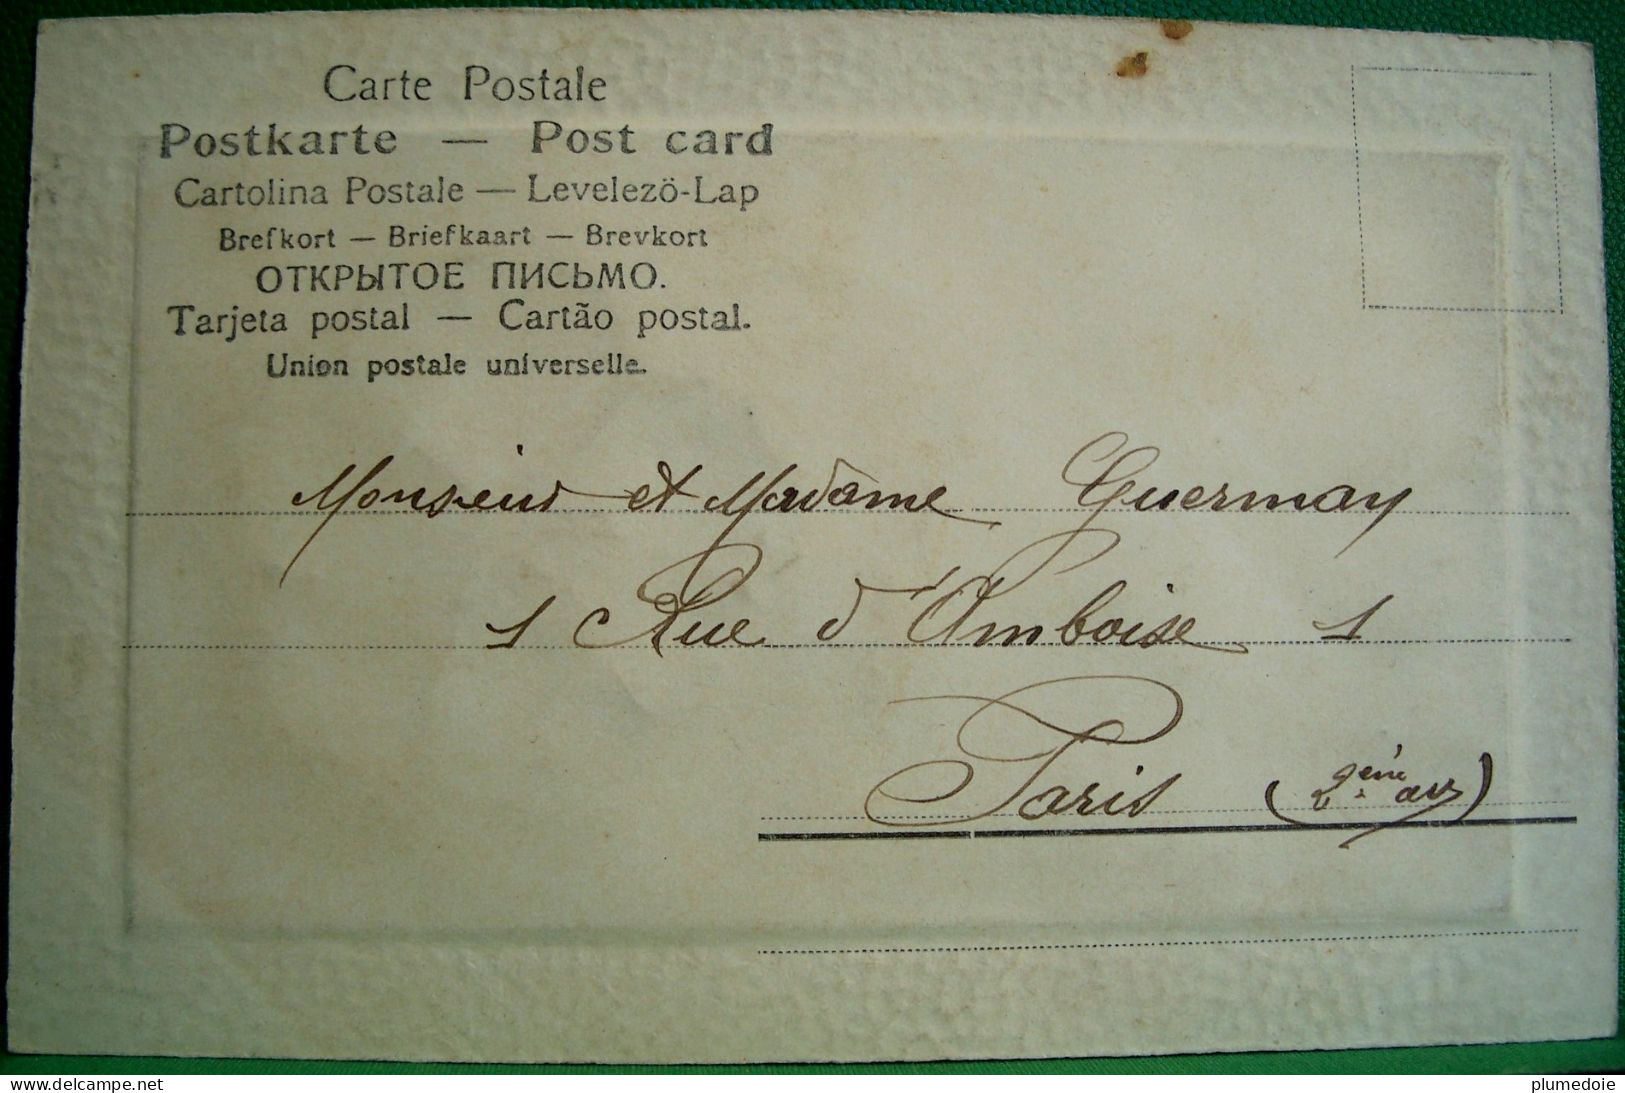 Carte Postale
Postkarte — Post card
Cartolina Postale — Levelezö-Lap
Brefkort — Briefkaart — Brevkort
ОТКРЫТОЕ ПИСЬМО.
Tarjeta postal — Cartão postal.
Union postale universelle.
Monsieur et Madame Guermay
1 Rue d'Amboise 1
Paris (2ème arr)
delcampe.net
plumedoie